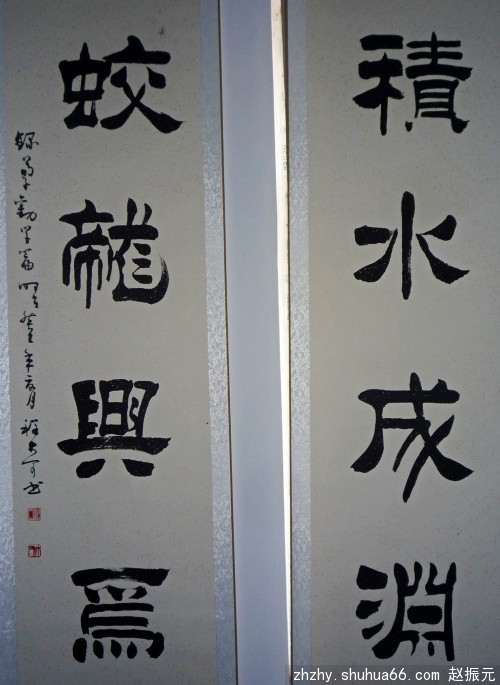 積水成淵
蛟龍興焉
錄荀子勸學篇
zhzhy.shuhua66.com 赵振元